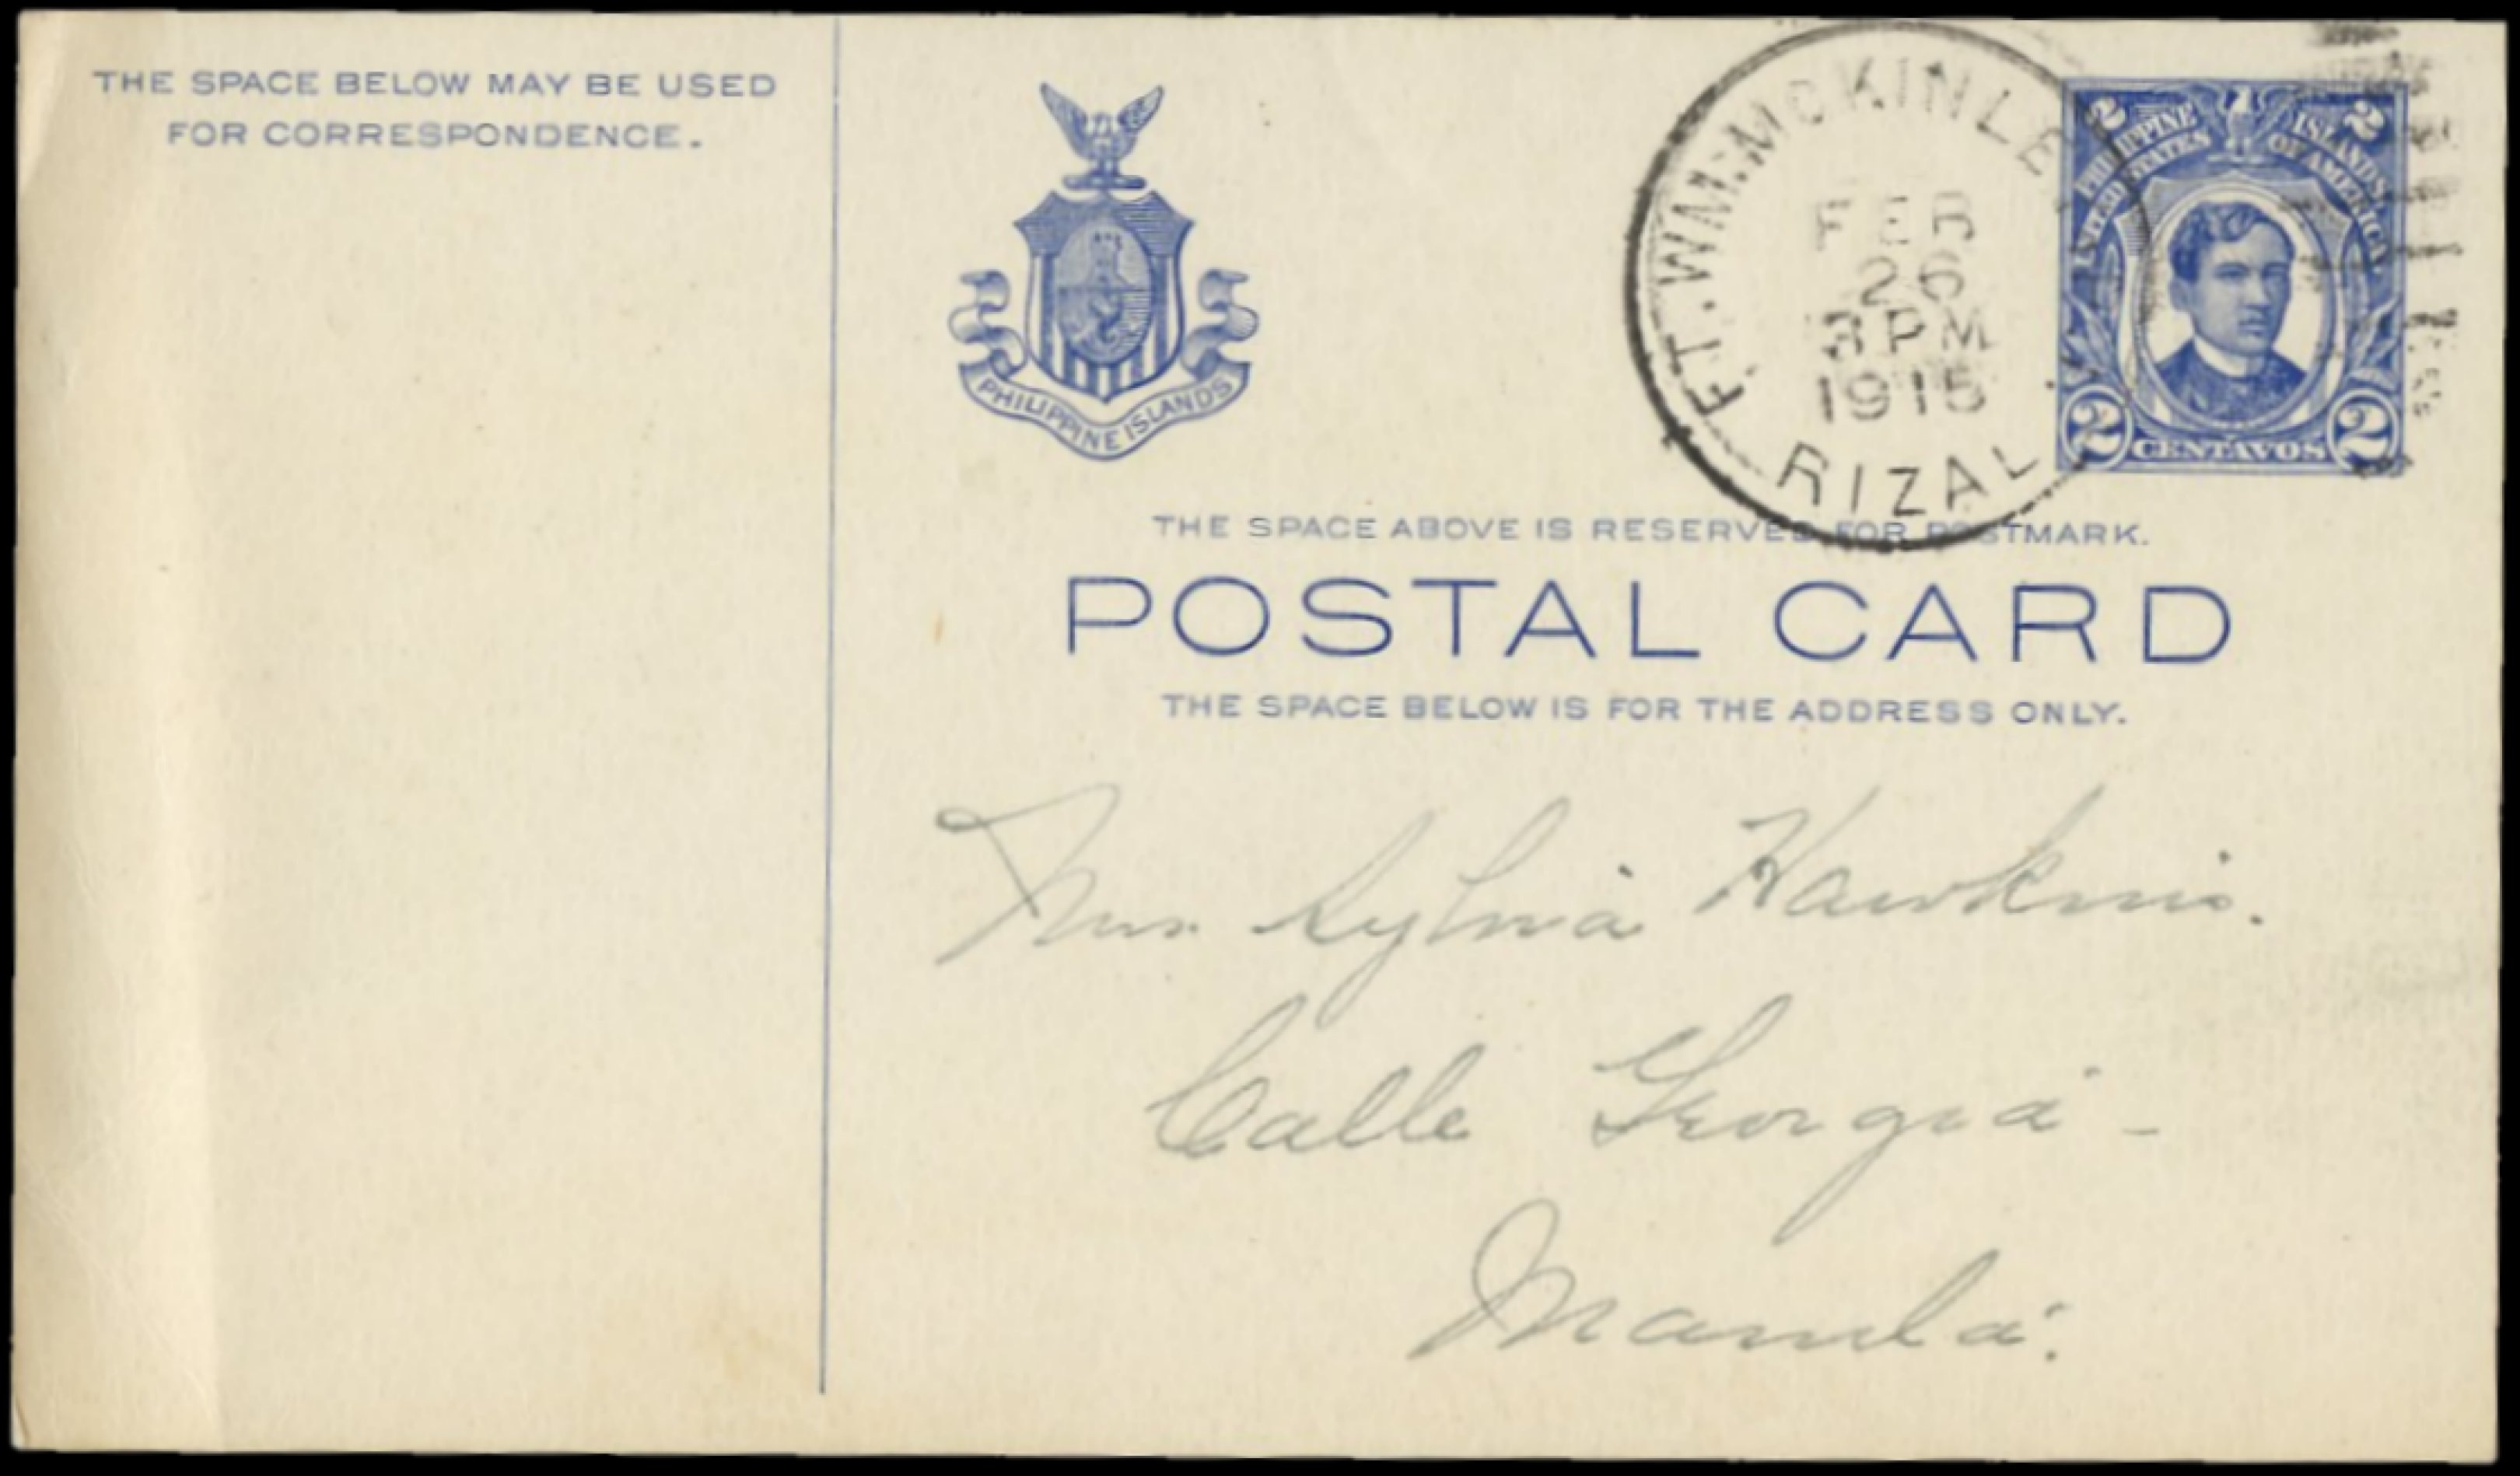 THE SPACE BELOW MAY BE USED
FOR CORRESPONDENCE.
PHILIPPINE ISLANDS
FT. WM. MCKINLEY
FEB
26
3 PM
1915
RIZAL
2 2
PHILIPPINE ISLANDS
UNITED STATES OF AMERICA
2 CENTAVOS 2
THE SPACE ABOVE IS RESERVED FOR POSTMARK.
POSTAL CARD
THE SPACE BELOW IS FOR THE ADDRESS ONLY.
Mrs. Sylvia Hawkins.
Calle Georgia -
Manila.